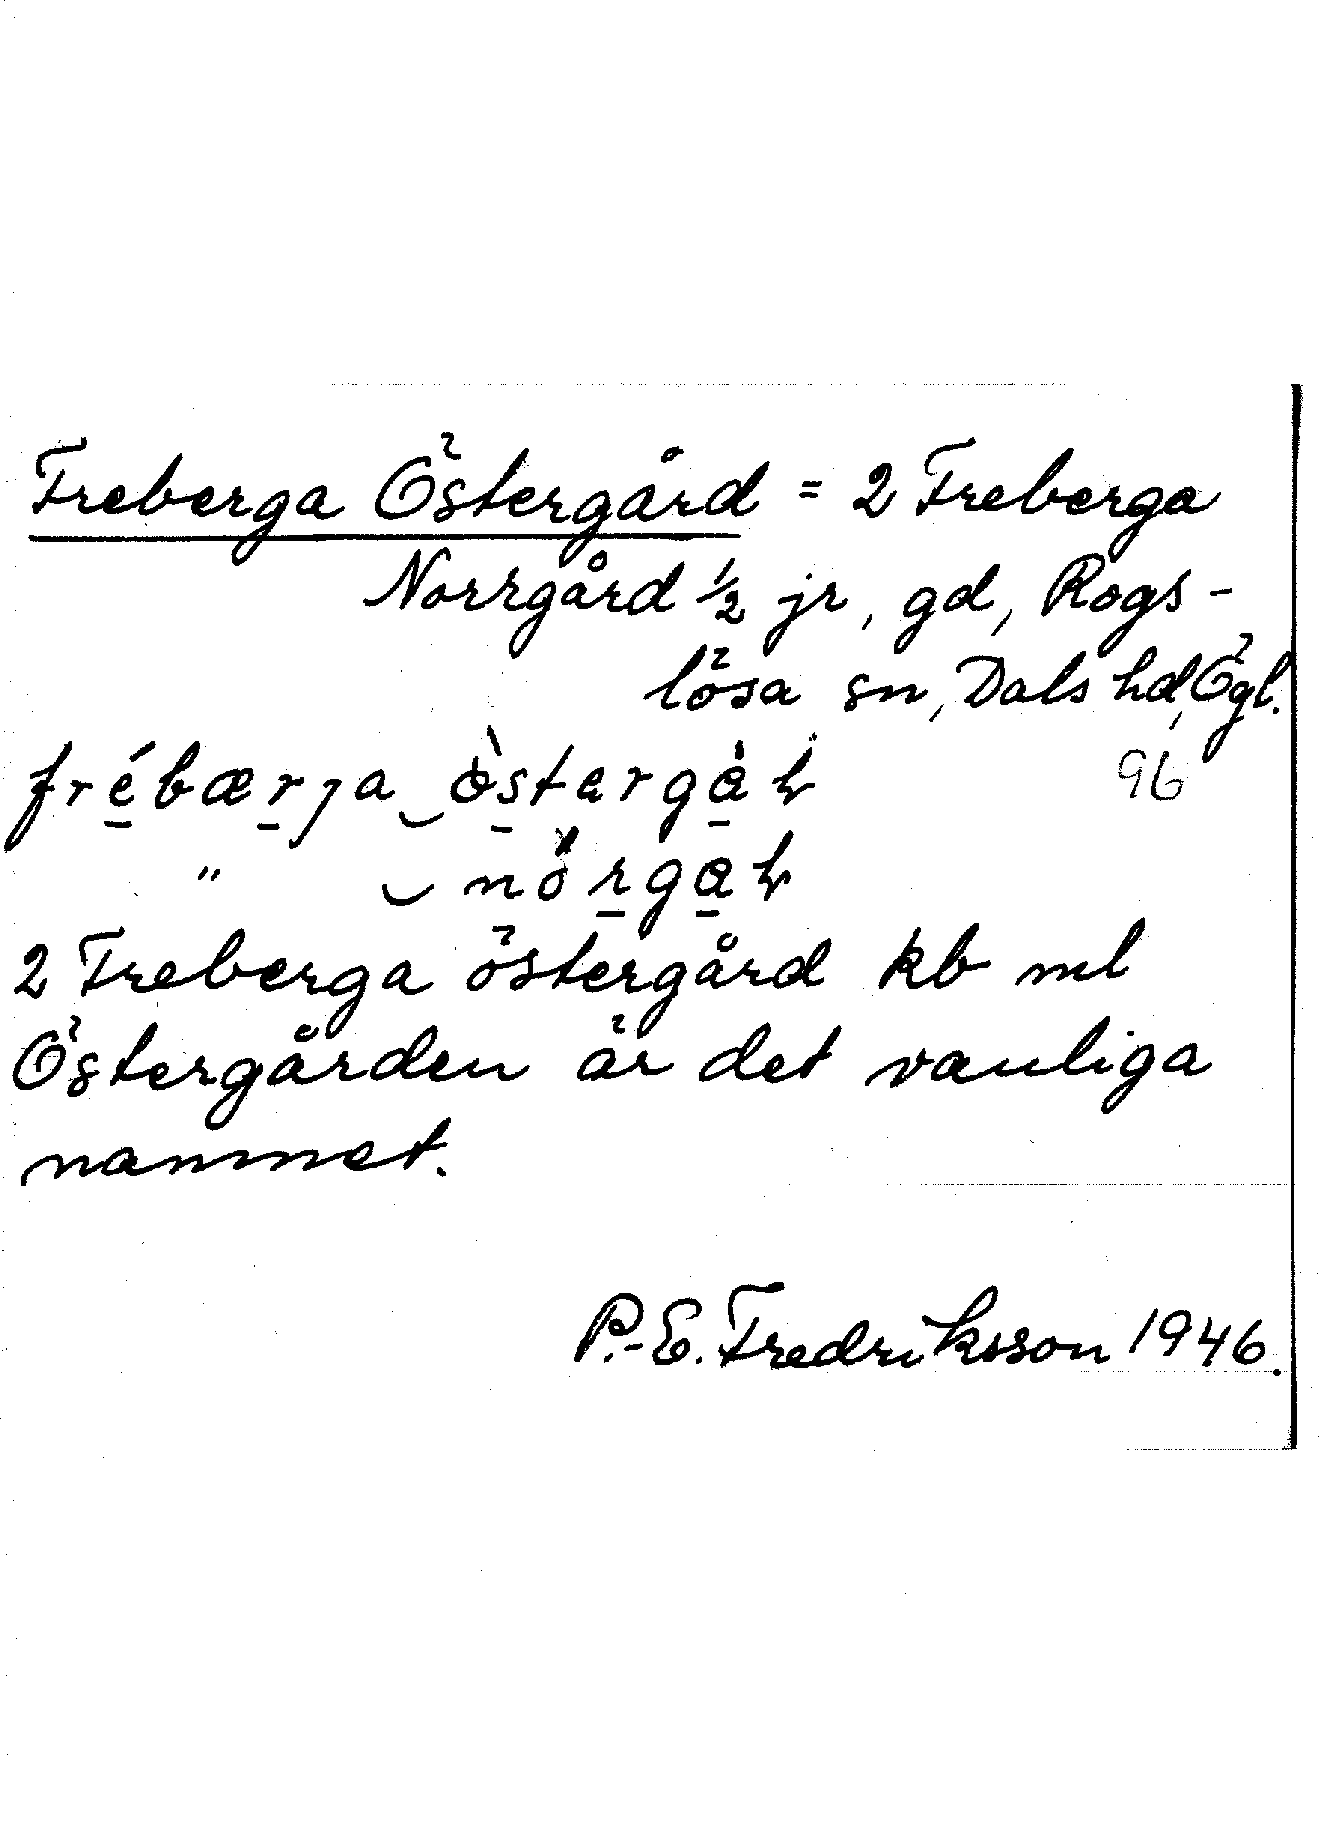 Freberga Östergård = 2 Freberga
Norrgård ½ jr, gd, Rogs-
lösa sn, Dals hd, Ögl.
frébærja ‿ òstergàɽ 96
" ‿ nö̀rgaɽ
2 Freberga östergård kb ml
Östergården är det vanliga
namnet.
P.-E. Fredriksson 1946.